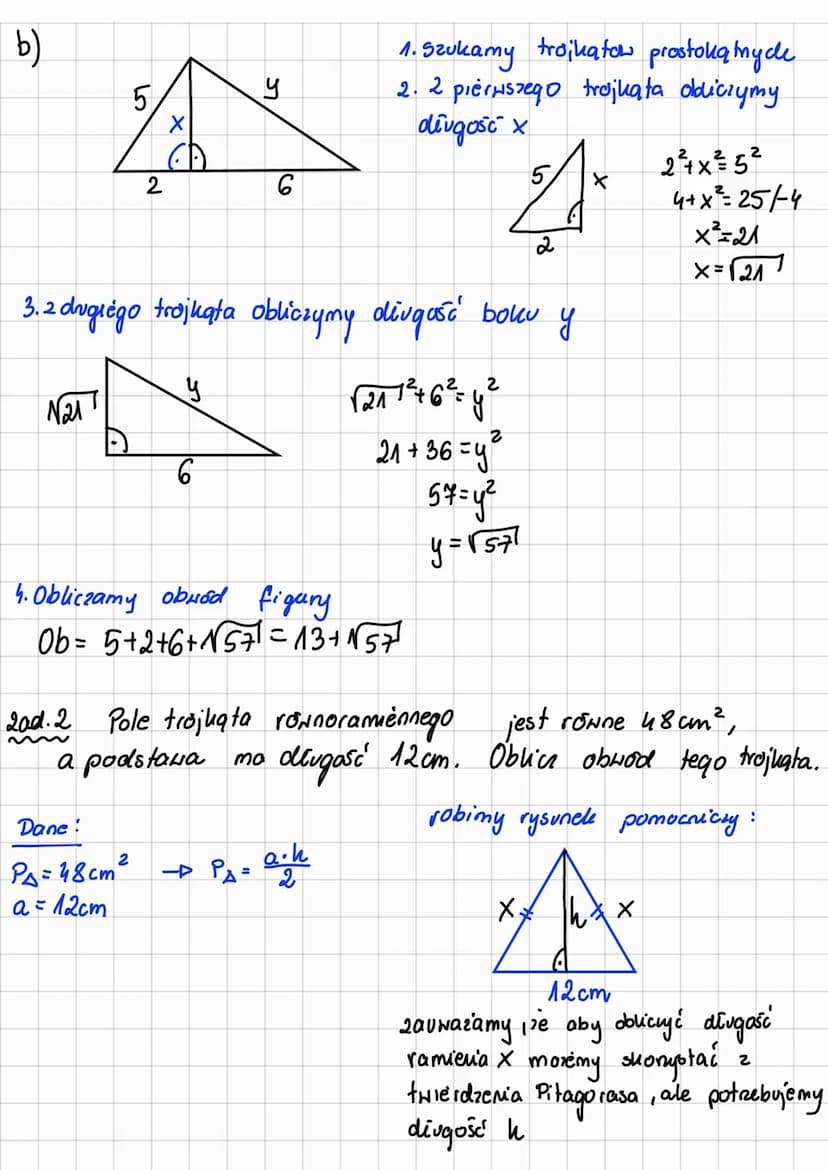 b)
5
x
y
2
6
1. Szukamy trojkątow prostokątnych
2. Z pierwszego trojkąta obliczymy
długość x
5
x
2
2²+x²=5²
4+x²=25/-4
x²=21
x=√21
3. Z drugiego trojkąta obliczymy długość boku y
√21
y
6
√21²+6²=y²
21+36=y²
57=y²
y=√57
4. Obliczamy obwód figury
Ob= 5+2+6+√57=13+√57
Zad.2 Pole trojkąta równoramiennego jest równe 48cm²,
a podstawa ma długość 12cm. Oblicz obwód tego trojkąta.
Dane:
P△=48cm² → P△= a·h/2
a=12cm
robimy rysunek pomocniczy:
x
h
x
12cm
zauważamy, że aby obliczyć długość
ramienia x możemy skorzystać z
twierdzenia Pitagorasa, ale potrzebujemy
długość h